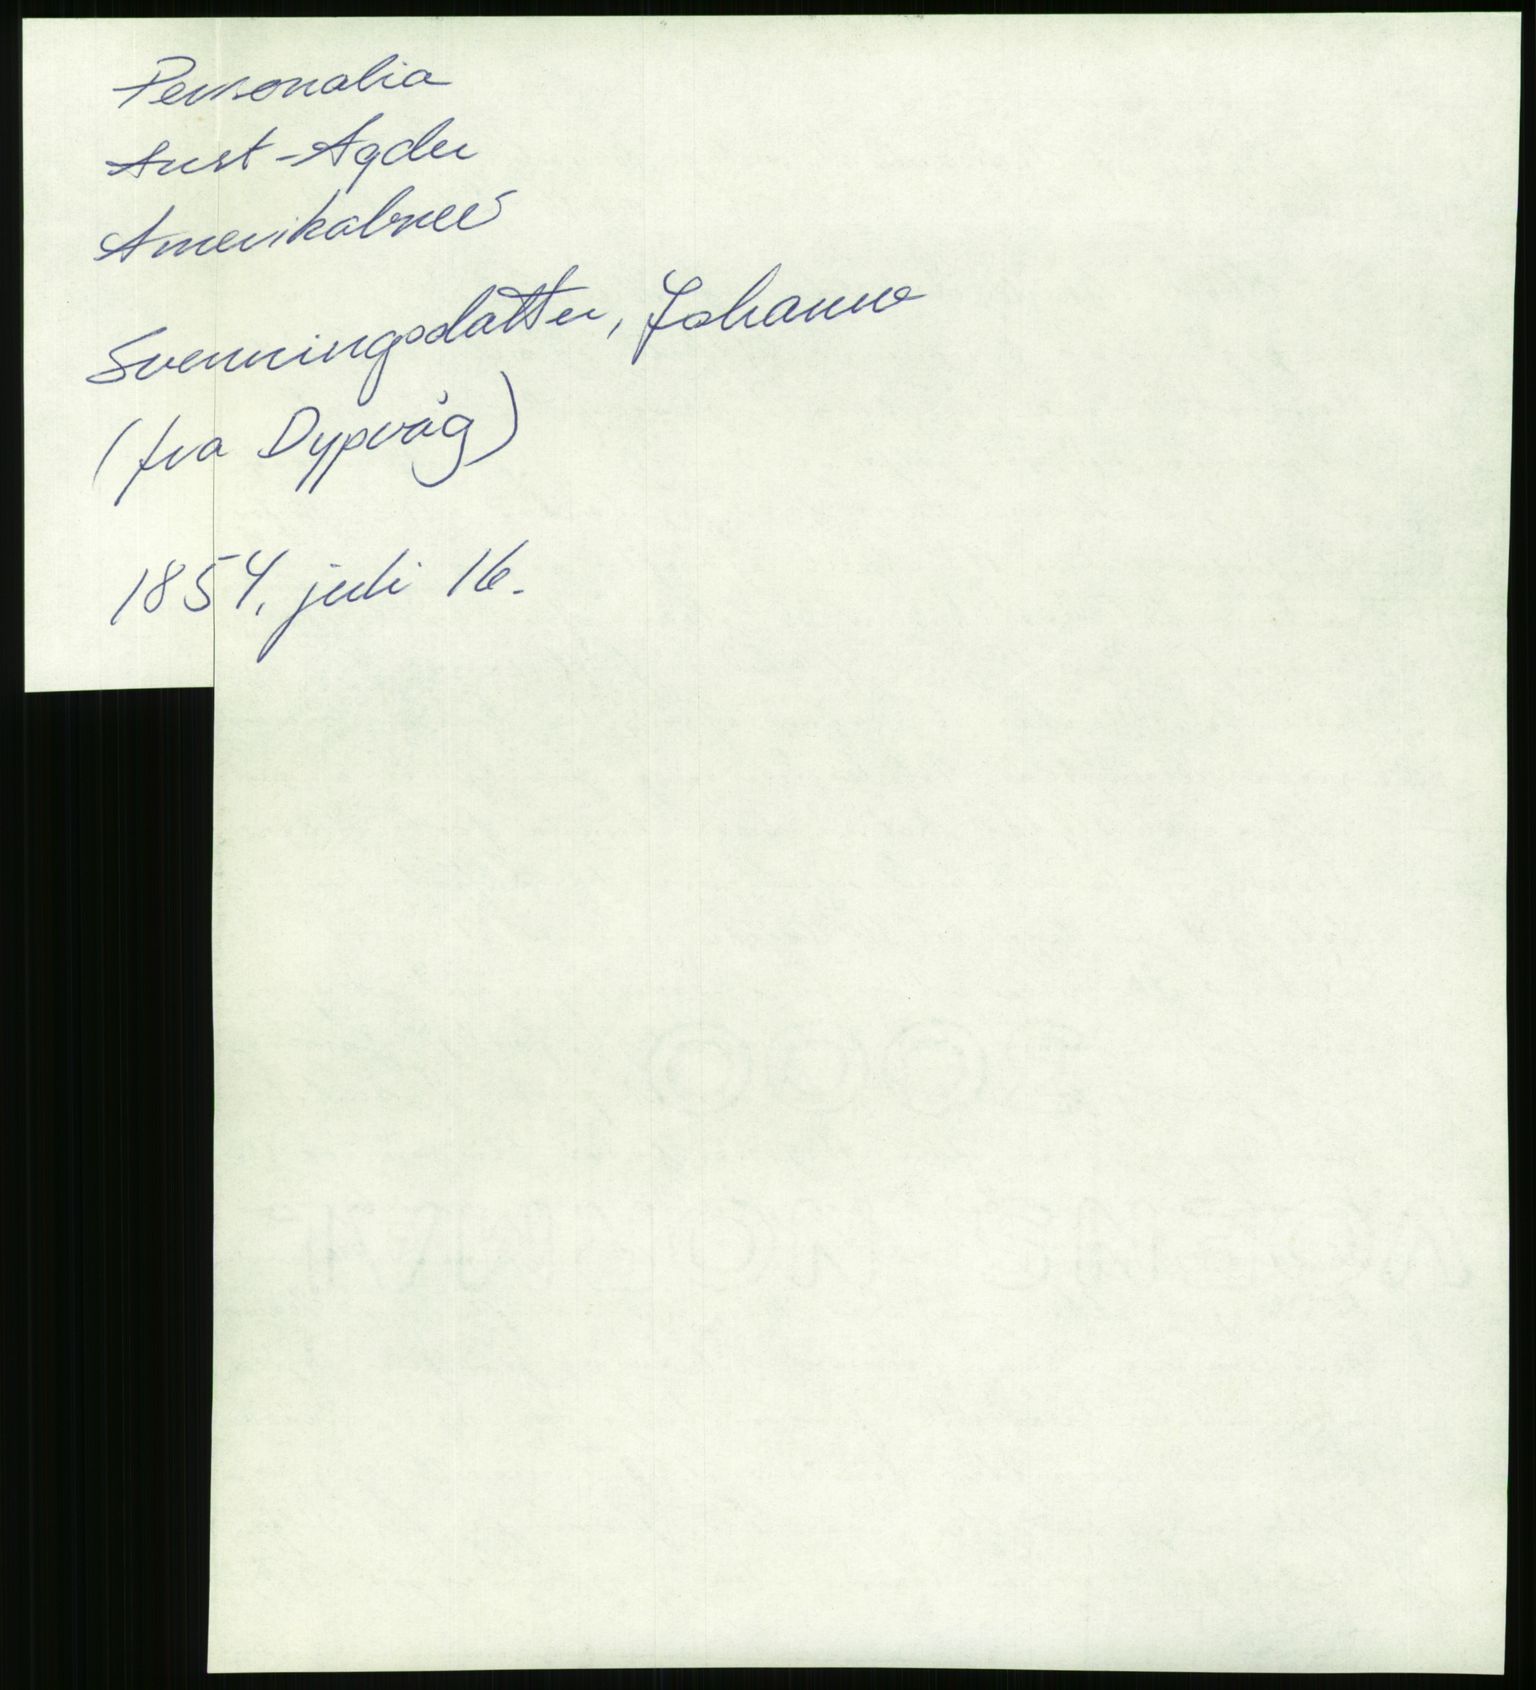 Personalia
Aust-Agder
Amerikabrev
Svenningsdatter, Johanne
(fra Dypvåg)
1854, juli 16.